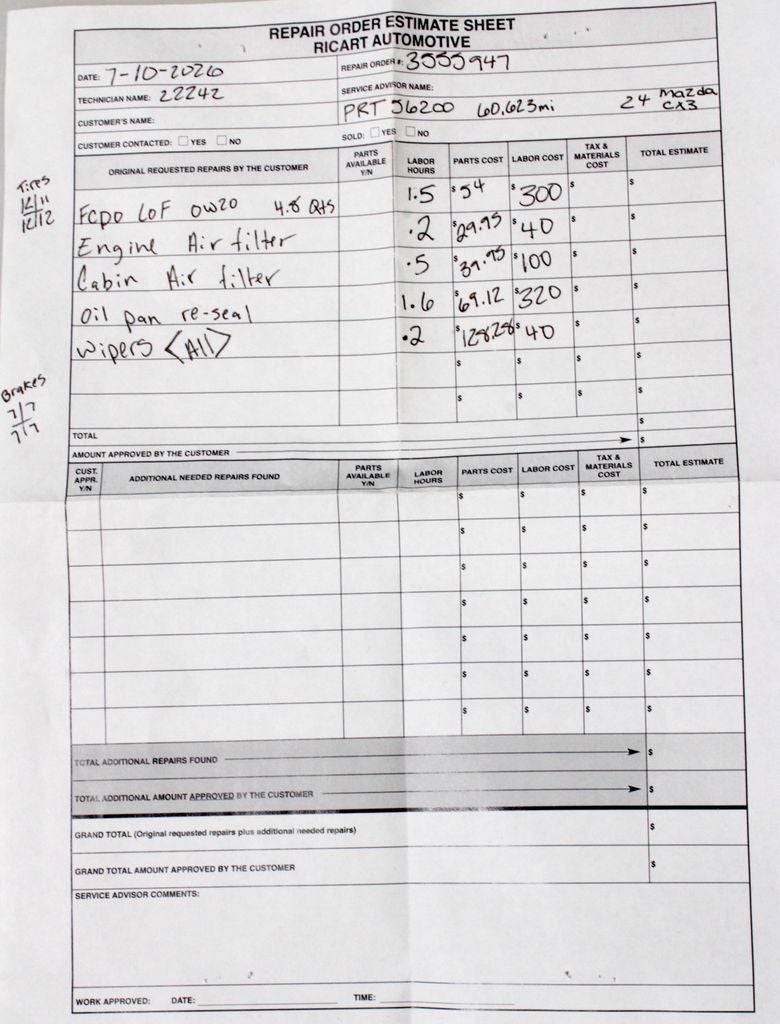 REPAIR ORDER ESTIMATE SHEET
RICART AUTOMOTIVE
DATE: 7-10-2026 REPAIR ORDER #: 3555947
TECHNICIAN NAME: 22242 SERVICE ADVISOR NAME:
CUSTOMER'S NAME: PRT 56200 60,623mi 24 Mazda
CX3
CUSTOMER CONTACTED: YES NO SOLD: YES NO
ORIGINAL REQUESTED REPAIRS BY THE CUSTOMER PARTS AVAILABLE Y/N LABOR HOURS PARTS COST LABOR COST TAX & MATERIALS COST TOTAL ESTIMATE
Tires
12/11
12/12
Fcpo LOF 0W20 4.8 Qts 1.5 $54 $300 $ $
Engine Air filter .2 $29.95 $40 $ $
Cabin Air filter .5 $39.95 $100 $ $
Oil pan re-seal 1.6 $69.12 $320 $ $
Wipers <All> .2 $128.28 $40 $ $
$ $ $ $
$ $ $ $
Brakes
7/7
7/7
TOTAL $
AMOUNT APPROVED BY THE CUSTOMER $
CUST. APPR. Y/N ADDITIONAL NEEDED REPAIRS FOUND PARTS AVAILABLE Y/N LABOR HOURS PARTS COST LABOR COST TAX & MATERIALS COST TOTAL ESTIMATE
$ $ $ $
$ $ $ $
$ $ $ $
$ $ $ $
$ $ $ $
$ $ $ $
$ $ $ $
TOTAL ADDITIONAL REPAIRS FOUND $
TOTAL ADDITIONAL AMOUNT APPROVED BY THE CUSTOMER $
GRAND TOTAL (Original requested repairs plus additional needed repairs) $
GRAND TOTAL AMOUNT APPROVED BY THE CUSTOMER $
SERVICE ADVISOR COMMENTS:
WORK APPROVED: DATE: TIME: